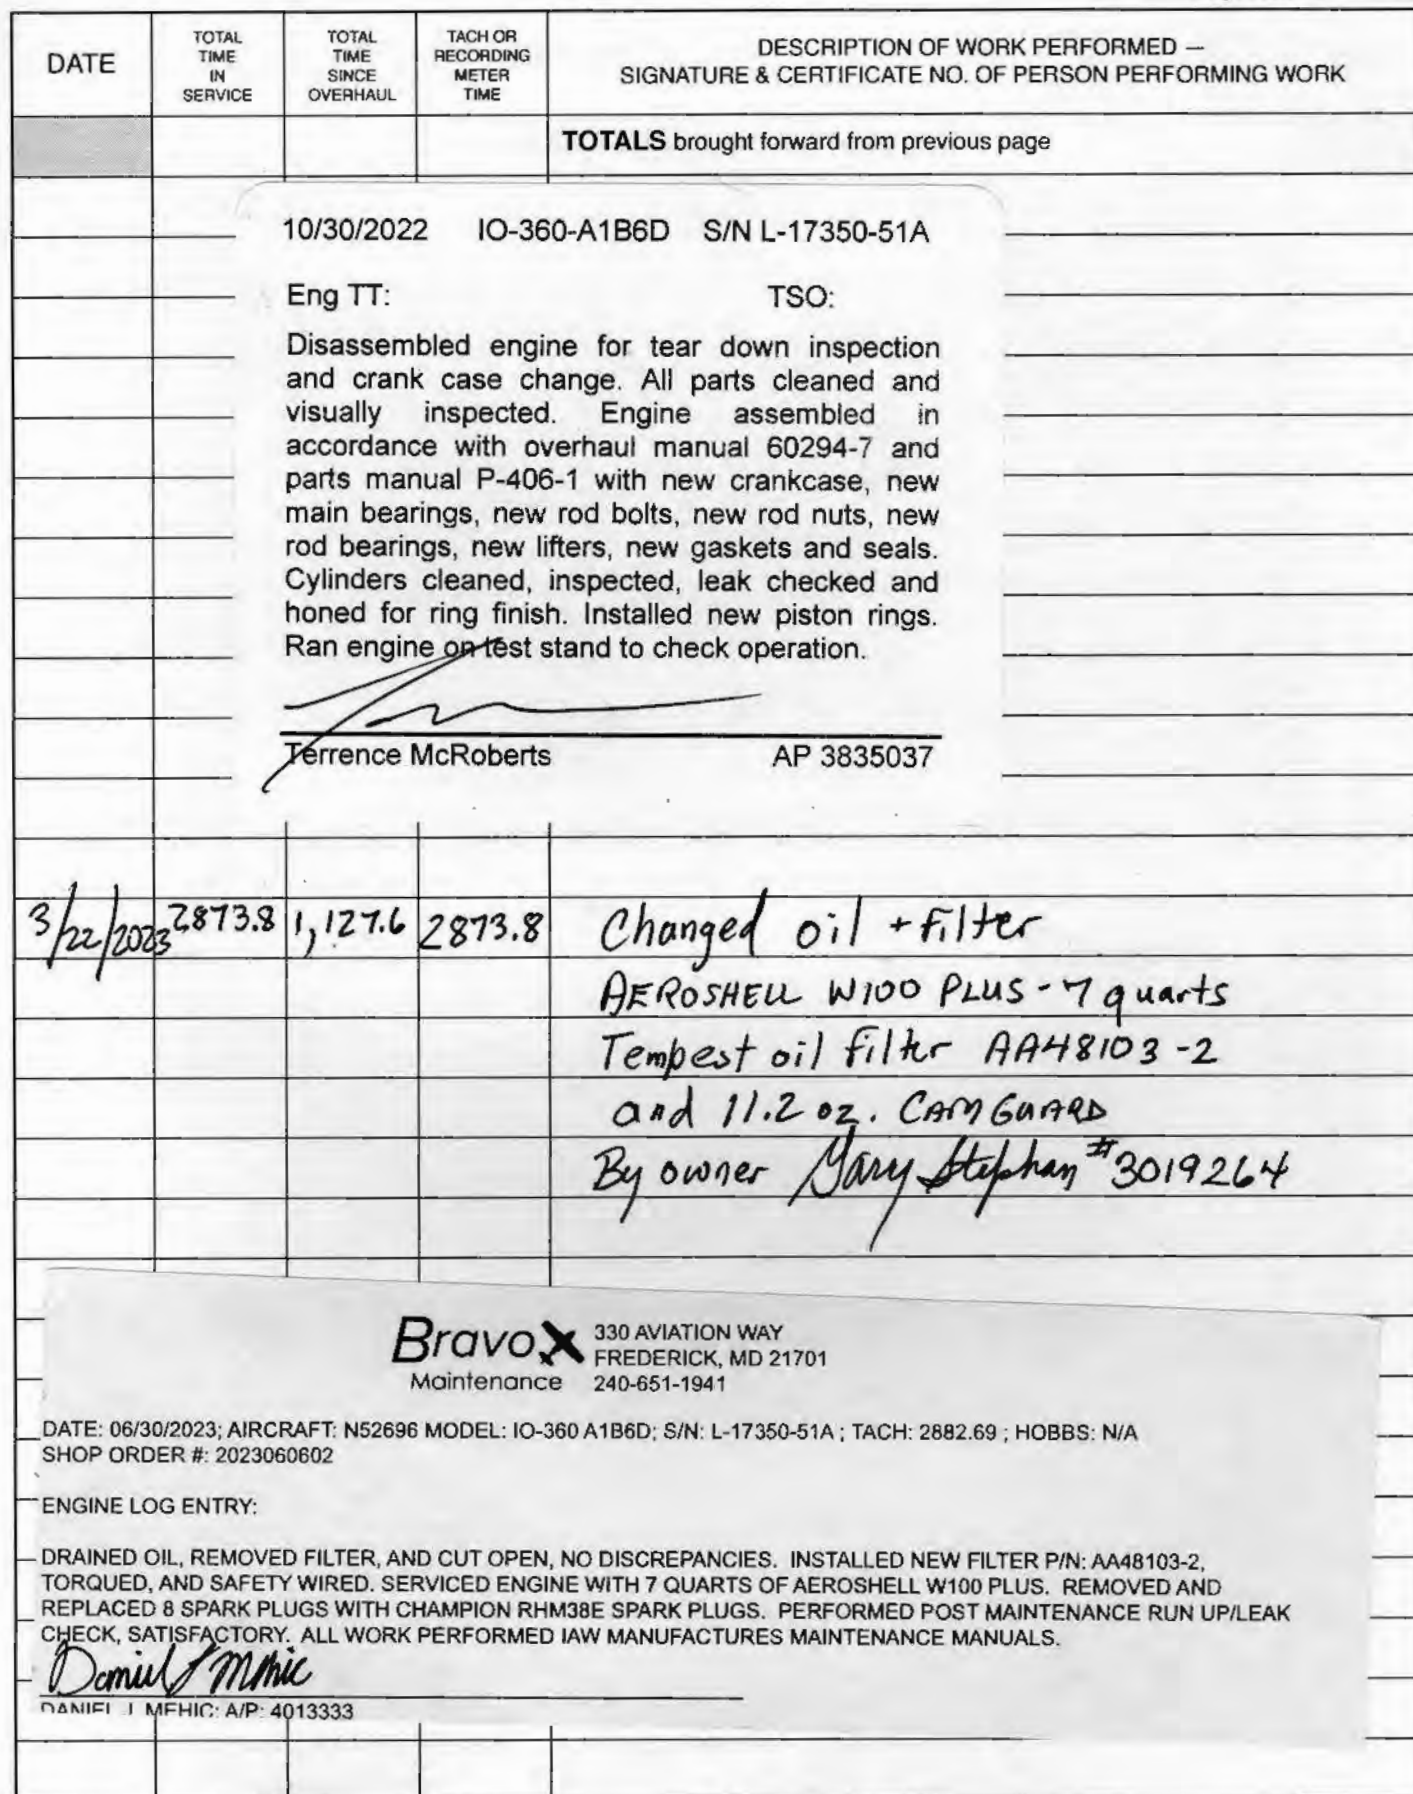 DATE
TOTAL TIME IN SERVICE
TOTAL TIME SINCE OVERHAUL
TACH OR RECORDING METER TIME
DESCRIPTION OF WORK PERFORMED —
SIGNATURE & CERTIFICATE NO. OF PERSON PERFORMING WORK
TOTALS brought forward from previous page
10/30/2022 IO-360-A1B6D S/N L-17350-51A
Eng TT: TSO:
Disassembled engine for tear down inspection
and crank case change. All parts cleaned and
visually inspected. Engine assembled in
accordance with overhaul manual 60294-7 and
parts manual P-406-1 with new crankcase, new
main bearings, new rod bolts, new rod nuts, new
rod bearings, new lifters, new gaskets and seals.
Cylinders cleaned, inspected, leak checked and
honed for ring finish. Installed new piston rings.
Ran engine on test stand to check operation.
Terrence McRoberts AP 3835037
3/22/2023 2873.8 1,127.6 2873.8 Changed oil + filter
AEROSHELL W100 PLUS - 7 quarts
Tempest oil filter AA48103-2
and 11.2 oz. CAMGUARD
By owner Gary Stephan #3019264
Bravo
Maintenance
330 AVIATION WAY
FREDERICK, MD 21701
240-651-1941
DATE: 06/30/2023; AIRCRAFT: N52696 MODEL: IO-360 A1B6D; S/N: L-17350-51A ; TACH: 2882.69 ; HOBBS: N/A
SHOP ORDER #: 2023060602
ENGINE LOG ENTRY:
DRAINED OIL, REMOVED FILTER, AND CUT OPEN, NO DISCREPANCIES. INSTALLED NEW FILTER P/N: AA48103-2,
TORQUED, AND SAFETY WIRED. SERVICED ENGINE WITH 7 QUARTS OF AEROSHELL W100 PLUS. REMOVED AND
REPLACED 8 SPARK PLUGS WITH CHAMPION RHM38E SPARK PLUGS. PERFORMED POST MAINTENANCE RUN UP/LEAK
CHECK, SATISFACTORY. ALL WORK PERFORMED IAW MANUFACTURES MAINTENANCE MANUALS.
Daniel J Mehic
DANIEL J. MEHIC: A/P: 4013333